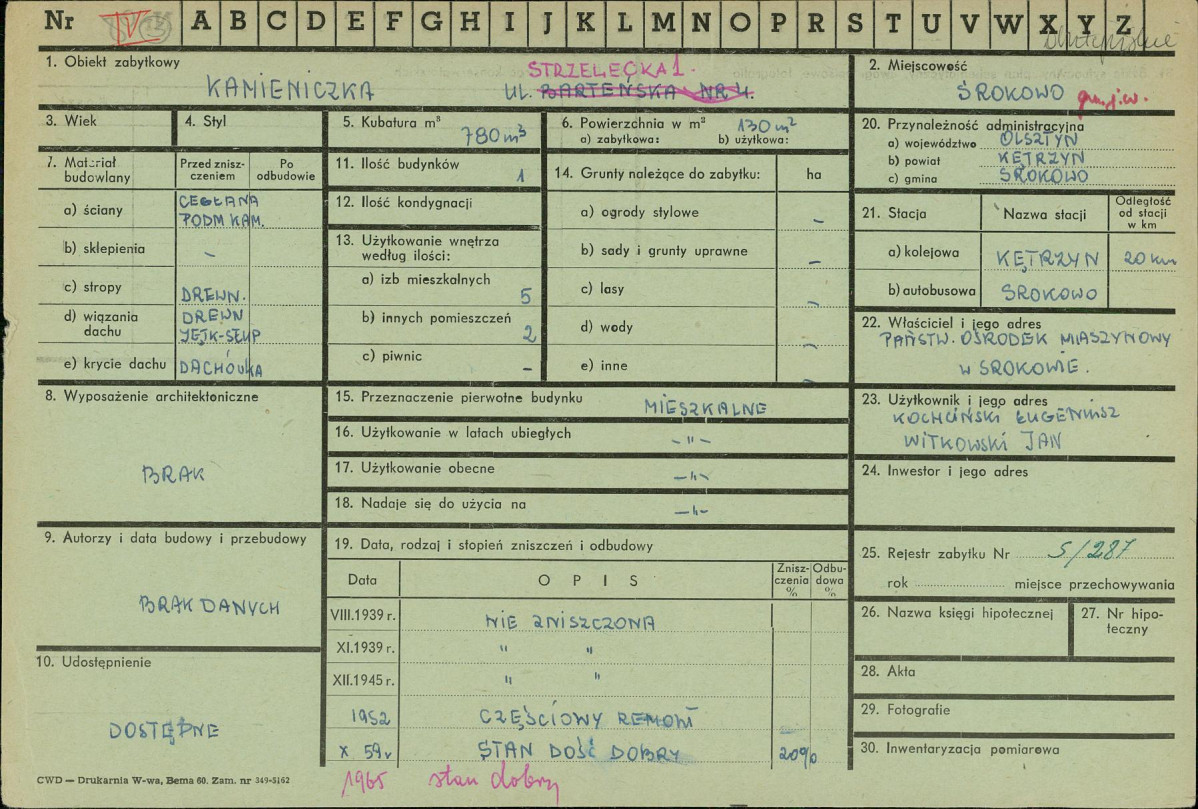 Nr IV A B C D E F G H I J K L M N O P R S T U V W X Y Z
1. Obiekt zabytkowy
KAMIENICZKA
STRZELECKA 1.
UL. BARTEŃSKA NR 4.
2. Miejscowość
SROKOWO gm. j.w.
3. Wiek
4. Styl
5. Kubatura m³
780 m³
6. Powierzchnia w m²
130 m²
a) zabytkowa: b) użytkowa:
20. Przynależność administracyjna
a) województwo OLSZTYN
b) powiat KĘTRZYN
c) gmina SROKOWO
7. Materiał budowlany
Przed znisz-
czeniem
Po
odbudowie
a) ściany
CEGLANA
PODM KAM.
b) sklepienia –
c) stropy DREWN.
d) wiązania
dachu
DREWN
JĘTK-SŁUP
e) krycie dachu DACHÓWKA
11. Ilość budynków 1
12. Ilość kondygnacji
13. Użytkowanie wnętrza
według ilości:
a) izb mieszkalnych 5
b) innych pomieszczeń 2
c) piwnic –
14. Grunty należące do zabytku: ha
a) ogrody stylowe –
b) sady i grunty uprawne –
c) lasy –
d) wody –
e) inne –
21. Stacja
Nazwa stacji
Odległość
od stacji
w km
a) kolejowa KĘTRZYN 20 km
b) autobusowa SROKOWO
22. Właściciel i jego adres
PAŃSTW. OŚRODEK MASZYNOWY
W SROKOWIE.
8. Wyposażenie architektoniczne
BRAK
15. Przeznaczenie pierwotne budynku MIESZKALNE
16. Użytkowanie w latach ubiegłych –"–
17. Użytkowanie obecne –"–
18. Nadaje się do użycia na –"–
23. Użytkownik i jego adres
EUGENIUSZ
WITKOWSKI JAN
24. Inwestor i jego adres
9. Autorzy i data budowy i przebudowy
BRAK DANYCH
19. Data, rodzaj i stopień zniszczeń i odbudowy
Data
O P I S
Znisz-
czenia
%
Odbu-
dowa
%
VIII.1939 r. NIE ZNISZCZONA
XI.1939 r. " "
XII.1945 r. " "
1952 CZĘŚCIOWY REMONT
X 59 r STAN DOŚĆ DOBRY 20%
1965 stan dobry
25. Rejestr zabytku Nr S/287
rok miejsce przechowywania
26. Nazwa księgi hipotecznej
27. Nr hipo-
teczny
10. Udostępnienie
DOSTĘPNE
28. Akta
29. Fotografie
30. Inwentaryzacja pomiarowa
CWD — Drukarnia W-wa, Bema 60. Zam. nr 349-5162